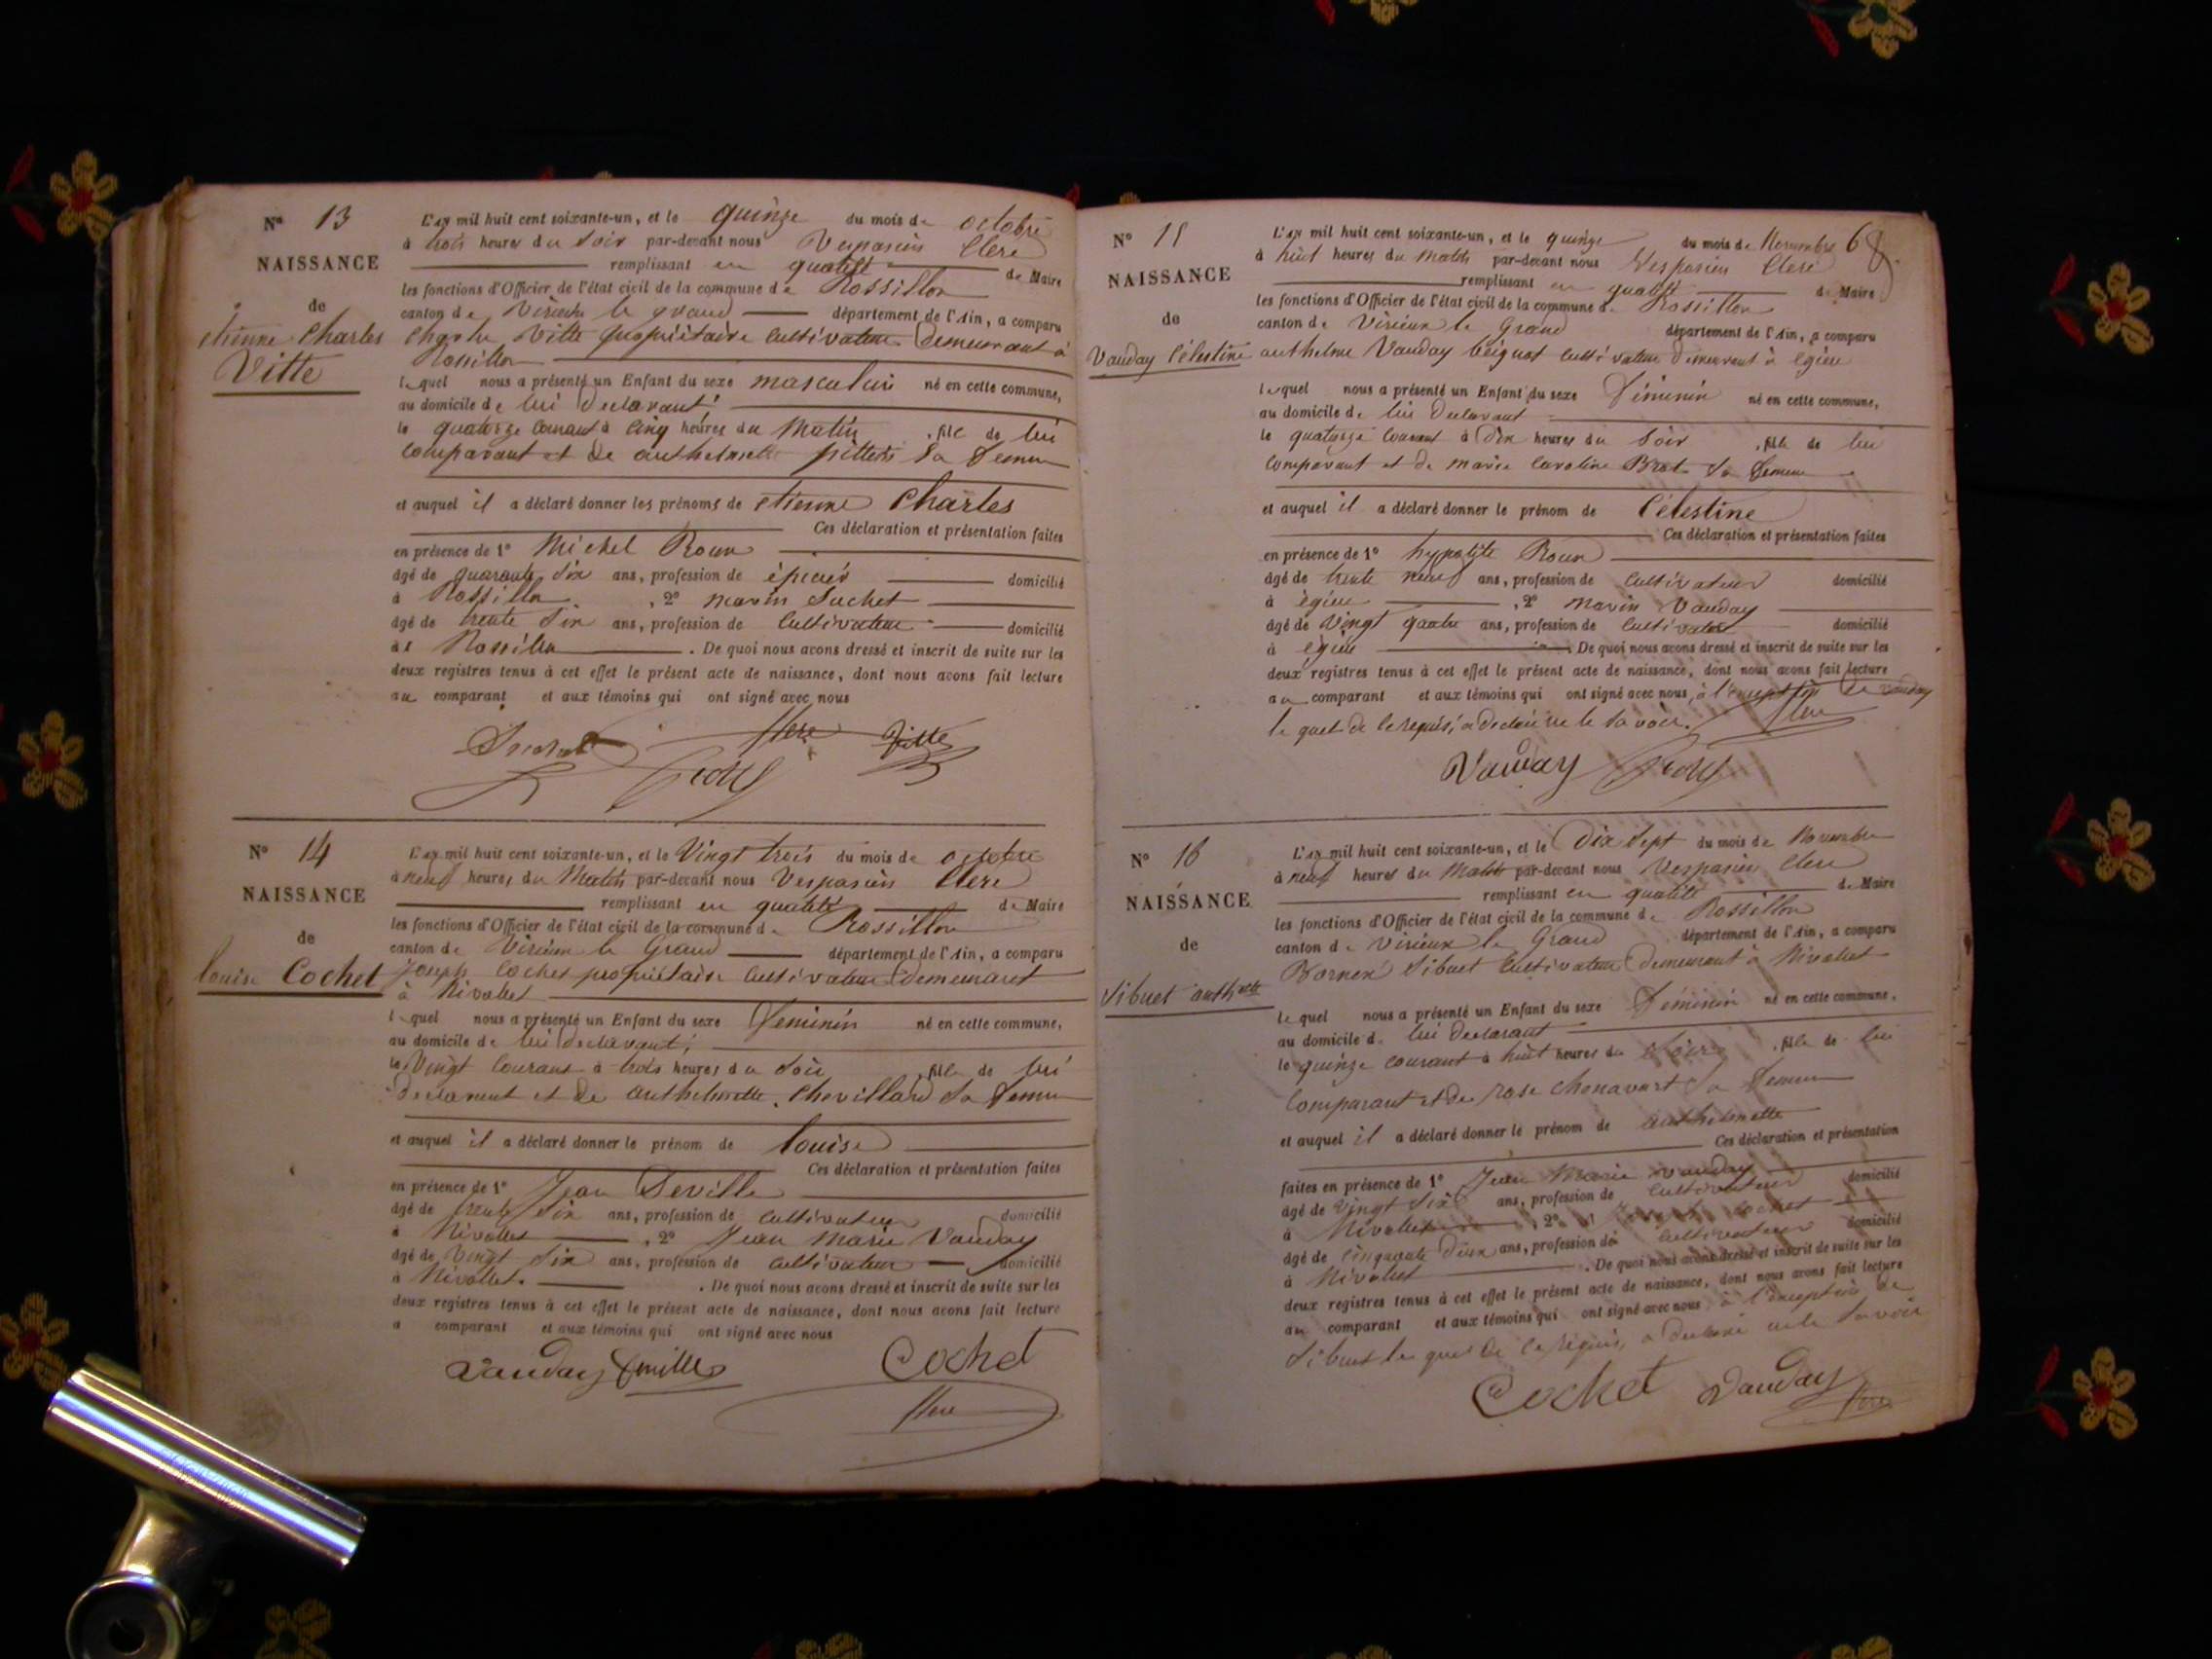 N° 13
NAISSANCE
de
etienne Charles
Vitte
L'an mil huit cent soixante-un, et le quinze du mois de octobre
à trois heures du soir par-devant nous Vespasien Clerc
remplissant en qualité de Maire
les fonctions d'Officier de l'état civil de la commune de Rossillon
canton de Virieu le grand département de l'Ain, a comparu
Charles Vitte propriétaire cultivateur demeurant à
Rossillon
lequel nous a présenté un Enfant du sexe masculin né en cette commune,
au domicile de lui declarant
le quatorze courant à cinq heures du matin , fils de lui
comparant et de anthelmette sa femme
et auquel il a déclaré donner les prénoms de etienne Charles
Ces déclaration et présentation faites
en présence de 1° Michel Roux
âgé de quarante six ans, profession de épicier domicilié
à Rossillon , 2° marin Suchet
âgé de trente six ans, profession de cultivateur domicilié
à Rossillon . De quoi nous avons dressé et inscrit de suite sur les
deux registres tenus à cet effet le présent acte de naissance, dont nous avons fait lecture
au comparant et aux témoins qui ont signé avec nous
Suchet Clerc Vitte
Roux
N° 14
NAISSANCE
de
louise Cochet
L'an mil huit cent soixante-un, et le Vingt trois du mois de octobre
à neuf heures du Matin par-devant nous Vespasien Clerc
remplissant en qualité de Maire
les fonctions d'Officier de l'état civil de la commune de Rossillon
canton de Virieu le Grand département de l'Ain, a comparu
Joseph Cochet propriétaire cultivateur demeurant
à Nivollet
lequel nous a présenté un Enfant du sexe feminin né en cette commune,
au domicile de lui declarant,
le Vingt courant à trois heures du soir , fille de lui
declarant et de anthelmette Chevillard sa femme
et auquel il a déclaré donner le prénom de louise
Ces déclaration et présentation faites
en présence de 1° Jean Deville
âgé de trente six ans, profession de cultivateur domicilié
à Nivollet , 2° Jean Marie Vauday
âgé de Vingt six ans, profession de cultivateur domicilié
à Nivollet . De quoi nous avons dressé et inscrit de suite sur les
deux registres tenus à cet effet le présent acte de naissance, dont nous avons fait lecture
a comparant et aux témoins qui ont signé avec nous
Vauday Deville Cochet
Clerc
68
N° 15
NAISSANCE
de
Vauday Célestine
L'an mil huit cent soixante-un, et le quinze du mois de Novembre
à huit heures du matin par-devant nous Vespasien Clerc
remplissant en qualité de Maire
les fonctions d'Officier de l'état civil de la commune de Rossillon
canton de Virieux le Grand département de l'Ain, a comparu
anthelme Vauday cultivateur demeurant à égieu
lequel nous a présenté un Enfant du sexe féminin né en cette commune,
au domicile de lui declarant
le quatorze courant à dix heures du soir , fille de lui
comparant et de marie caroline Brat sa femme
et auquel il a déclaré donner le prénom de Célestine
Ces déclaration et présentation faites
en présence de 1° hypolite Roux
âgé de trente neuf ans, profession de cultivateur domicilié
à égieu , 2° marin Vauday
âgé de vingt quatre ans, profession de cultivateur domicilié
à égieu . De quoi nous avons dressé et inscrit de suite sur les
deux registres tenus à cet effet le présent acte de naissance, dont nous avons fait lecture
au comparant et aux témoins qui ont signé avec nous, à l'exception de vauday
le quel de ce requis, a declaré ne le savoir. Clerc
Vauday Roux
N° 16
NAISSANCE
de
Sibuet anthette
L'an mil huit cent soixante-un, et le Dix sept du mois de Novembre
à neuf heures du Matin par-devant nous Vespasien Clerc
remplissant en qualité de Maire
les fonctions d'Officier de l'état civil de la commune de Rossillon
canton de Virieux le Grand département de l'Ain, a comparu
Sibuet cultivateur demeurant à Nivollet
lequel nous a présenté un Enfant du sexe féminin né en cette commune,
au domicile de lui declarant
le quinze courant à huit heures du soir , fille de lui
comparant et de rose chenavart sa femme
et auquel il a déclaré donner le prénom de anthelmette
Ces déclaration et présentation
faites en présence de 1° Jean Marie vauday domicilié
âgé de vingt six ans, profession de cultivateur
à Nivollet , 2° cochet
âgé de cinquante deux ans, profession de cultivateur domicilié
à Nivollet . De quoi nous avons dressé et inscrit de suite sur les
deux registres tenus à cet effet le présent acte de naissance, dont nous avons fait lecture
au comparant et aux témoins qui ont signé avec nous, à l'exception de
Sibuet le quel de ce requis, a declaré ne le savoir
Cochet Vauday Clerc